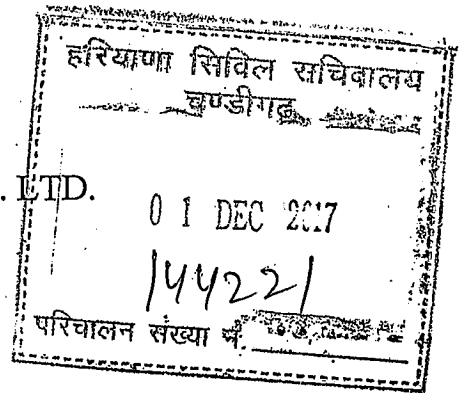 हरियाणा सिविल सचिवालय
चण्डीगढ़
. LTD.
0 1 DEC 2017
144221
परिचालन संख्या